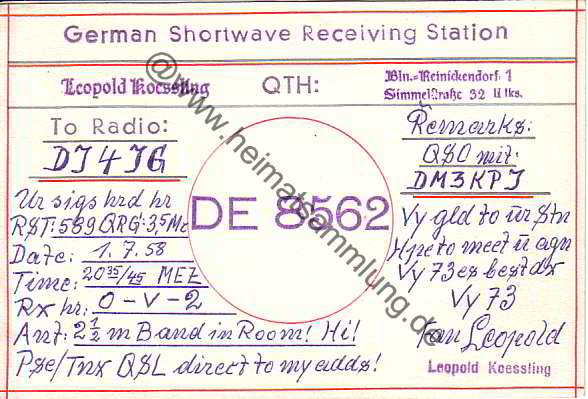 German Shortwave Receiving Station
Leopold Koessling QTH: Bln.-Reinickendorf. 1
Simmelstraße 32 II lks.
To Radio:
DJ4JG
Ur sigs hrd hr
RST: 589 QRG: 3,5 Mc
Date: 1.7.58
Time: 20 35/45 MEZ
Rx hr: 0-V-2
Ant: 2 1/2 m Band in Room! Hi!
Pse/Tnx QSL direct to my adds!
DE 8562
Remarks:
QSO mit:
DM3KPJ
Vy gld to ūr stn
Hpe to meet ū agn
Vy 73 es best dx
Vy 73
Leopold
Leopold Koessling
@www.heimatsammlung.de